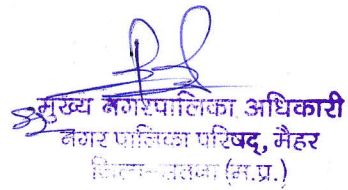 मुख्य नगरपालिका अधिकारी
नगर पालिका परिषद्, मैहर
जिला-सतना (म.प्र.)